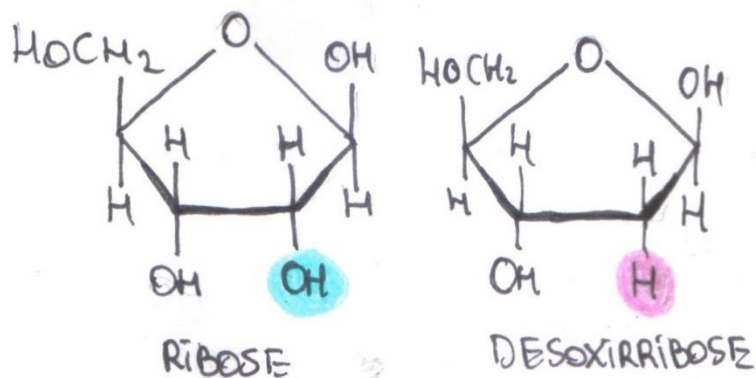 O
HOCH2
OH
H
H
H
H
OH
OH
RIBOSE
O
HOCH2
OH
H
H
H
H
OH
H
DESOXIRRIBOSE